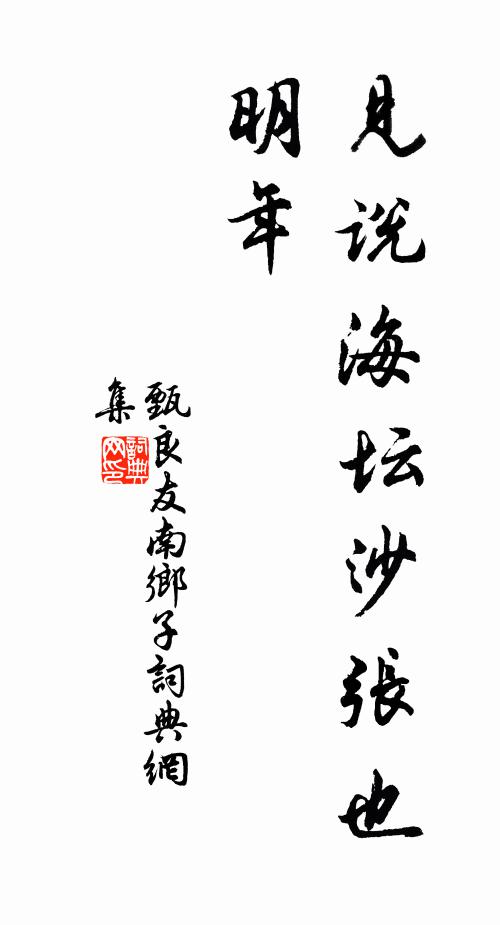 見説海坛沙張也
明年
甄良友南鄉子詞典網
集
詞典
网印